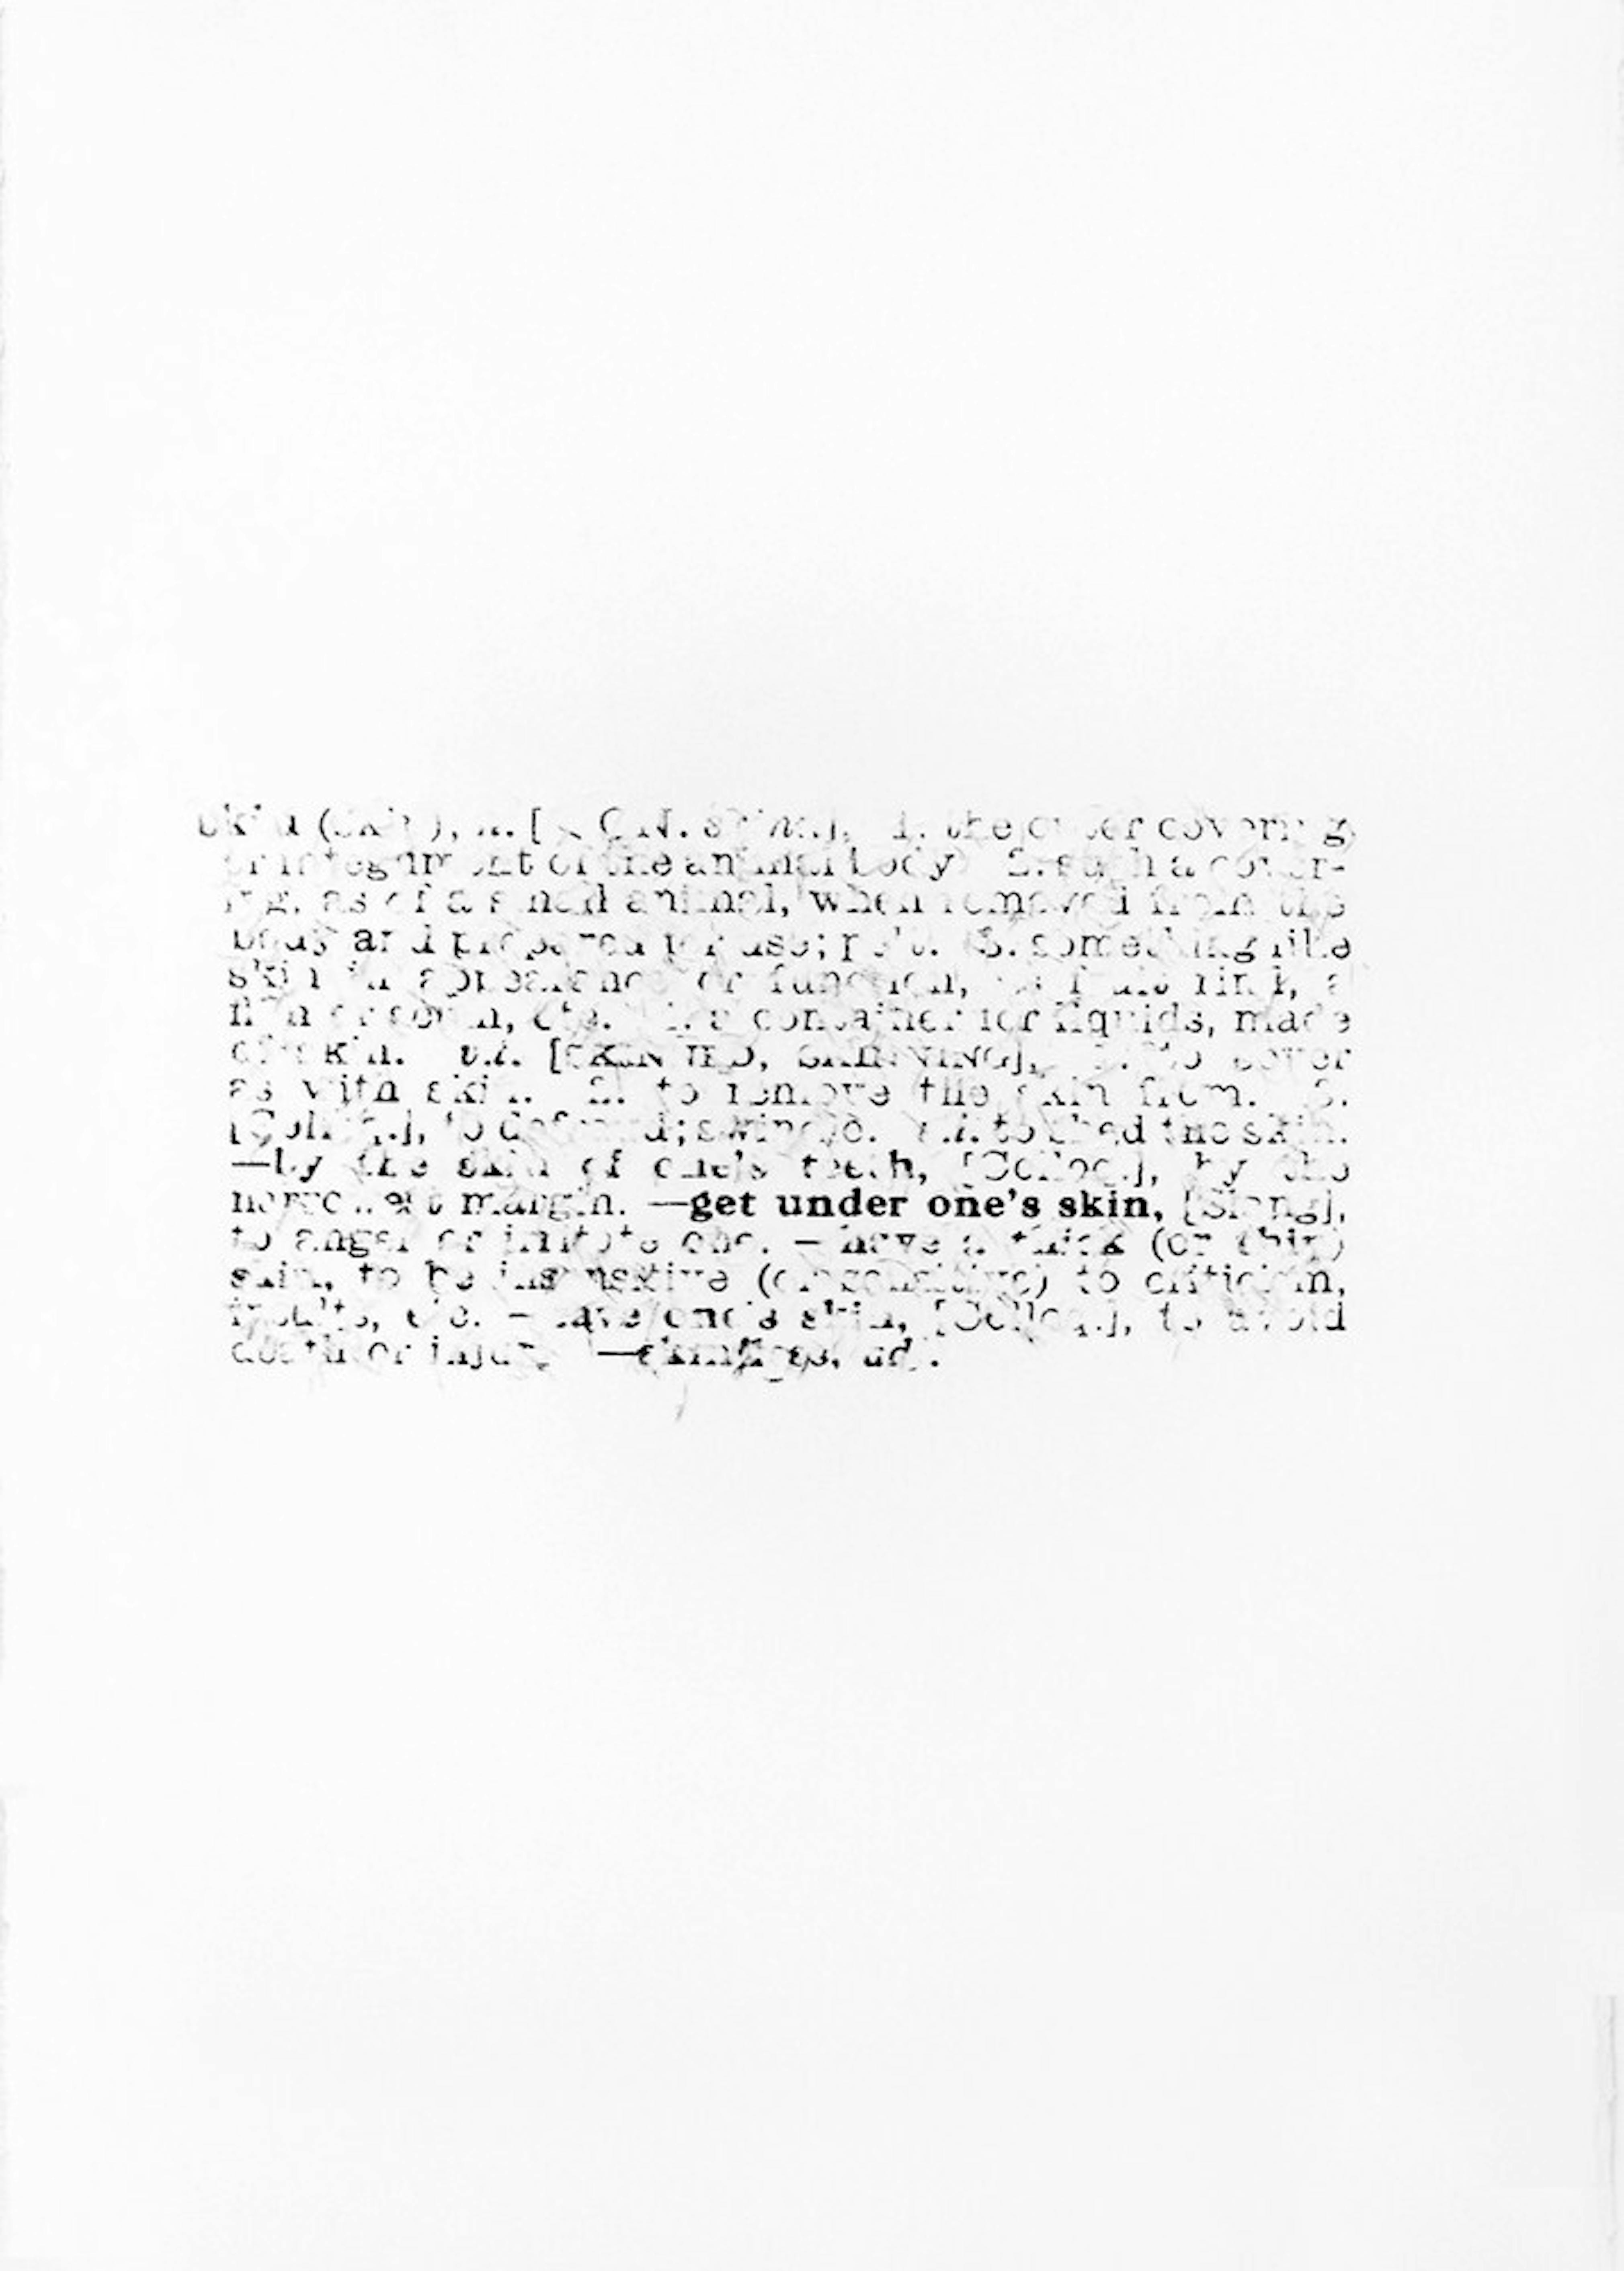 the outer covering
of the animal body 2. such a cover-
as of a small animal, when removed from the
body and prepared for use; pelt. 3. something like
skin in appearance or function, rind, a
or scum, etc. a container for liquids, made
of skin. v.t. [SKINNED, SKINNING], 1. to cover
as with skin. 2. to remove the skin from. 3.
[Colloq.], to defraud; swindle. v.i. to shed the skin.
—by the skin of one's teeth, [Colloq.], by the
narrowest margin. —get under one's skin, [Slang],
to anger or irritate one. —have a thick (or thin)
skin, to be insensitive (or sensitive) to criticism,
insults, etc. —save one's skin, [Colloq.], to avoid
death or injury. —skinless, adj.